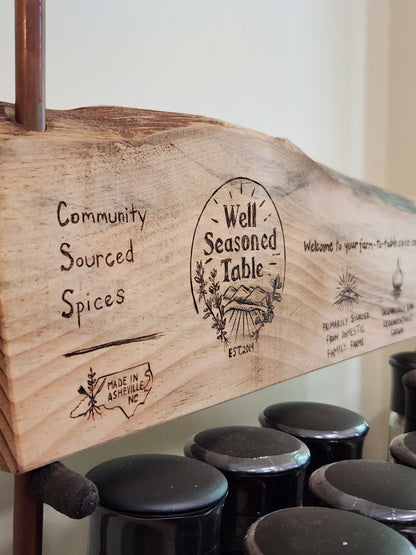 Community
Sourced
Spices
MADE IN
ASHEVILLE
NC
Well
Seasoned
Table
EST. 2019
Welcome to your farm-to-table spice
PRIMARILY SOURCED
FROM DOMESTIC
FAMILY FARMS
GROWN